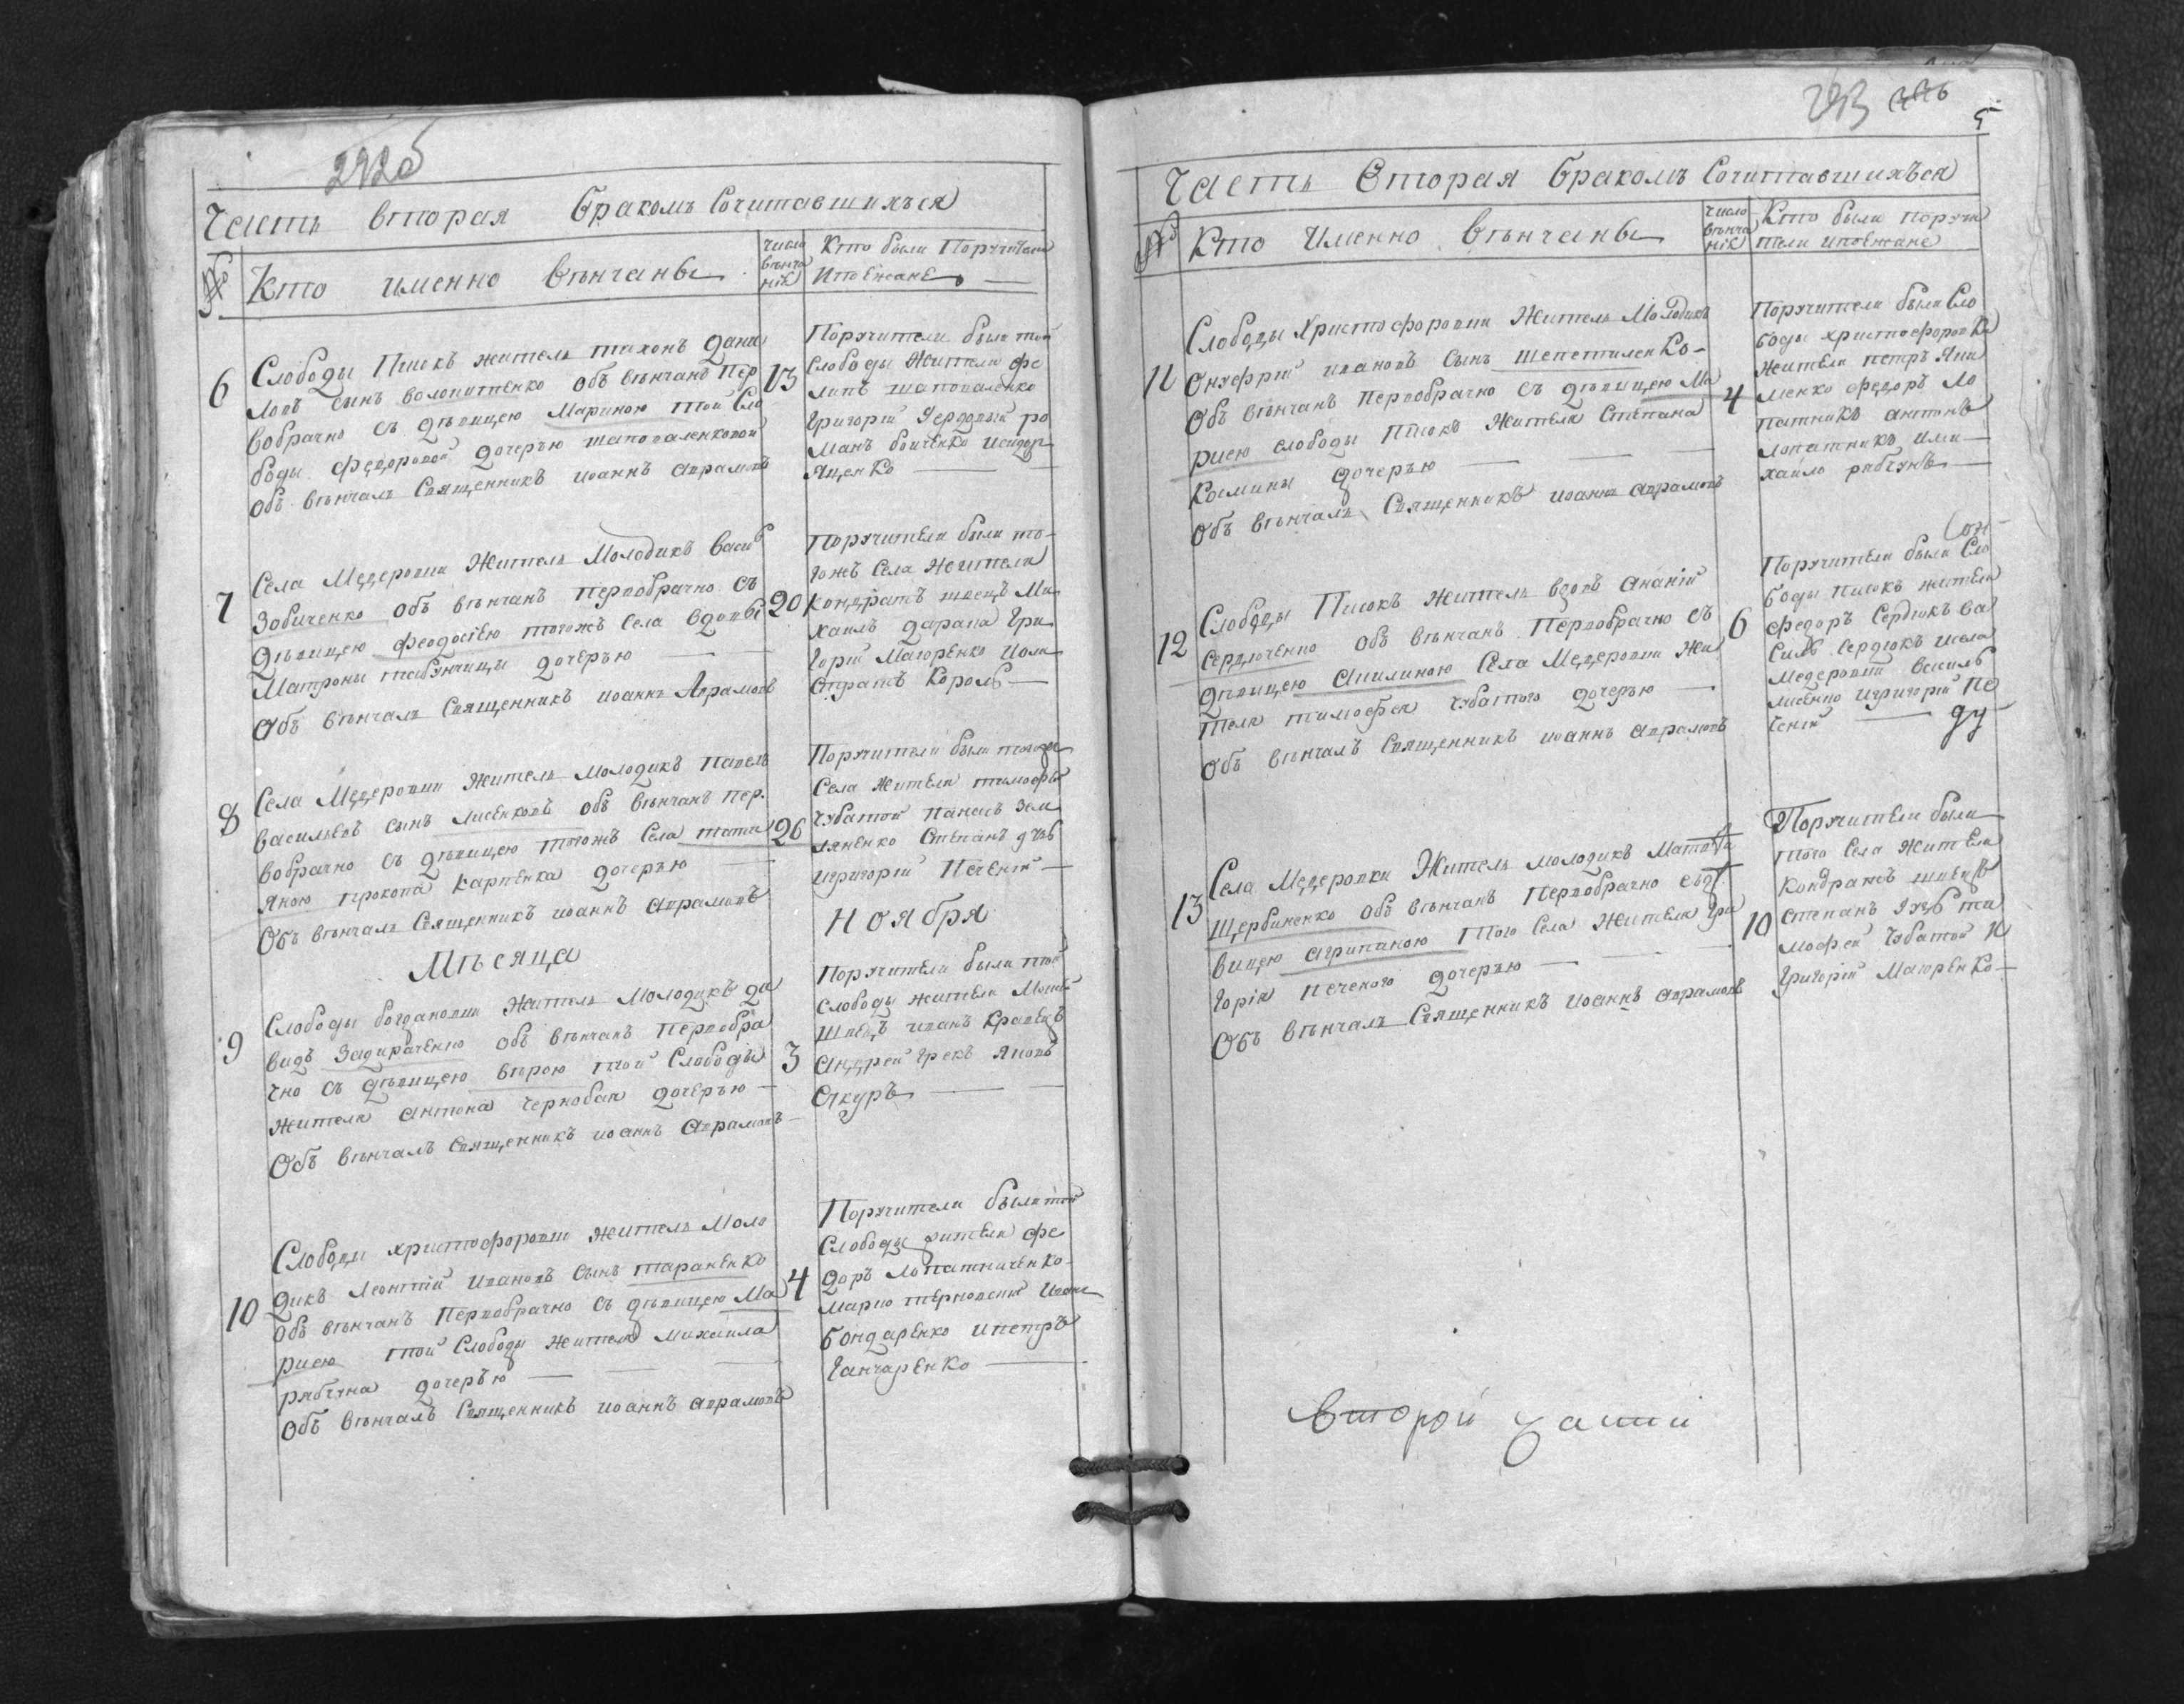 292б
Часть вторая бракомъ Сочитавшихъся
№
Кто именно вѣнчаны
число
вѣнча
нія
Кто были Поручители
Ипоезжанѣ
6
Слободы Писокъ житель тихонъ Дани
ловъ сынъ волошитенко объ вѣнчанъ пер
вобрачно съ дѣвицею Мариною той Сло
боды федоровой дочерью шаповаленковой
Объ вѣнчалъ Священникъ иоаннъ аврамовъ
13
Поручители были той
слободы Жители фе
липъ шаповаленко
Григорій Сердовый ро
манъ бойченко исидор
Яценко
7
Села Медеровки Житель Молодикъ васил
Зобиченко объ вѣнчанъ первобрачно съ
дѣвицею феодосіею тогожъ Села вдовы
Матроны табунчицы дочерью
Объ вѣнчалъ Священникъ иоаннъ Аврамовъ
20
Поручители были то-
гожъ Села Жители
Кондратъ швецъ Ми
хаилъ дарапа Гри
горій Магоренко Иоли
Стратъ Король
8
Села Медеровки Житель молодикъ павелъ
васильевъ сынъ лисенковъ объ вѣнчанъ пер.
вобрачно съ дѣвицею тогожъ Села тати
яною прокопа карпенка дочерью
Объ вѣнчалъ Священникъ иоаннъ аврамовъ
26
Поручители были тогожъ
Села Жители тимофей
Чубатой панасъ Зем
ляненко Степанъ дубъ
игригорій Печеній
Мѣсяца Ноября
9
Слободы богдановки Житель Молодикъ да
видъ Задираченко объ вѣнчанъ первобра
чно съ дѣвицею вѣрою той Слободы
жителя антона чернобая дочерью
Объ вѣнчалъ Священникъ иоаннъ аврамовъ
3
Поручители были той
слободы жители
швецъ иванъ кравецъ
Андрей Грекъ Яковъ
Скуръ
10
Слободы христофоровки житель Моло
дикъ Леонтій Ивановъ Сынъ тараненко
объ вѣнчанъ первобрачно съ дѣвицею Ма
риею той Слободы жителя михаила
рябчуна дочерью
Объ вѣнчалъ Священникъ иоаннъ аврамовъ
4
Поручители были той
слободы жители фе
доръ Лопатниченко
марко терновскій Иван
бондаренко ипетръ
Ганчаренко
293
5
Часть Вторая бракомъ Сочитавшихъся
№
Кто Именно вѣнчаны
число
вѣнча
нія
Кто были поручи
тели ипоезжане
11
Слободы Христофоровки Житель Молодикъ
Онуфрій ивановъ Сынъ шепетиленко-
Объ вѣнчанъ первобрачно съ дѣвицею Ма
риею слободы Писокъ Жителя Степана
Калины дочерью
Объ вѣнчалъ Священникъ иоаннъ аврамовъ
4
Поручители были Сло
боды христофоровки
жители петръ Яки
менко федоръ Ло
патникъ антонъ
лопатникъ ими
хайло рябчунъ
12
Слободы Писокъ житель вдовъ Ананій
Сердюченко объ вѣнчанъ Первобрачно съ
дѣвицею Акилиною Села Медеровки жи
теля тимофея чубатого дочерью
Объ вѣнчалъ Священникъ иоаннъ аврамовъ
6
Поручители были Сло
боды писокъ жители
федоръ Сердюкъ ва
силь Сердюкъ исела
медеровки василь
лисенко игригорій пе
ченій
13
Села Медеровки Житель молодикъ Матвѣй
Щербиненко объ вѣнчанъ Первобрачно съдѣ
вицею агрипиною того Села Жителя Гри
горія печеного дочерью
Объ вѣнчалъ Священникъ иоаннъ аврамовъ
10
Поручители были
того Села Жители
Кондратъ швецъ
степанъ дубъ ти
мофей Чубатой И
Григорій Магоренко
второй части